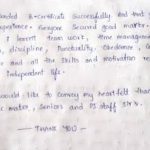 B-certificate Successfully. And that
experience. Everyone Secured good marks.
I learnt team work, time management
discipline, Punctuality, Obedience,
and all the Skills and motivation
independent life.
would like to convey my heartfelt
Seniors and staff
— THANK YOU —